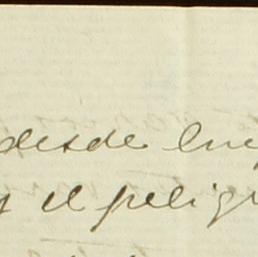 desde lueg
y el peligr